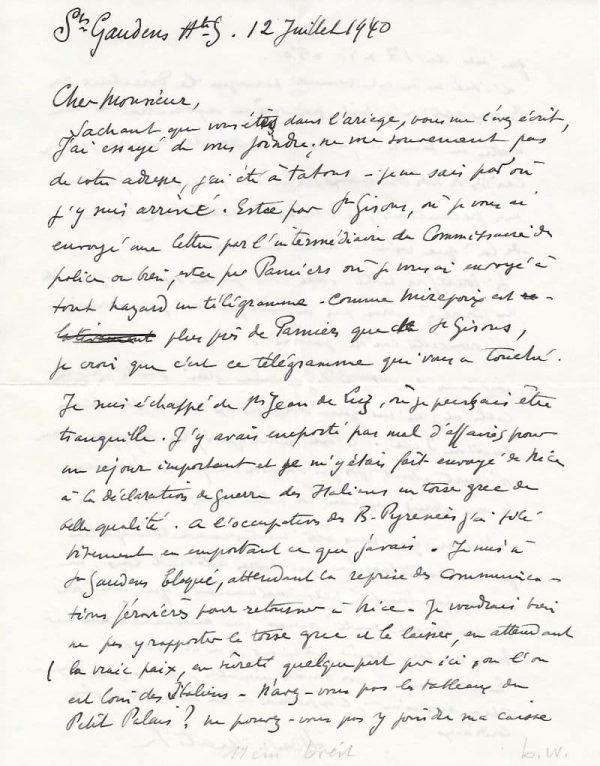 St Gaudens Hte G. 12 Juillet 1940
Cher Monsieur,
Sachant que vous étiez dans l'ariege, vous me l'avez écrit,
J'ai essayé de vous joindre; ne me souvenant pas
de votre adresse, j'ai été à tatons - je ne sais par où
j'y suis arrivé. Est ce par St Girons, où je vous ai
envoyé une lettre par l'intermédiaire du Commissaire de
police ou bien, est ce par Pamiers où je vous ai envoyé à
tout hazard un télégramme. Comme Mirepoix est
plus près de Pamiers que St Girons,
je crois que c'est ce télégramme qui vous a touché.
Je suis échappé de St Jean de Luz, où je pensais être
tranquille. J'y avais emporté pas mal d'affaires pour
un séjour important et je m'y étais fait envoyé de Nice
à la déclaration de guerre des Italiens un torse grec de
belle qualité. A l'occupation des B-Pyrenées j'ai filé
vitement en emportant ce que j'avais. Je suis à
St Gaudens bloqué, attendant la reprise des communica-
tions ferrières pour retourner à Nice - Je voudrais bien
ne pas y rapporter le torse grec et le laisser, en attendant
la vraie paix, en sûreté quelque part par ici, où l'on
est loin des Italiens - N'avez-vous pas les tableaux du
Petit Palais? ne pouvez-vous pas y joindre ma caisse
b.w.